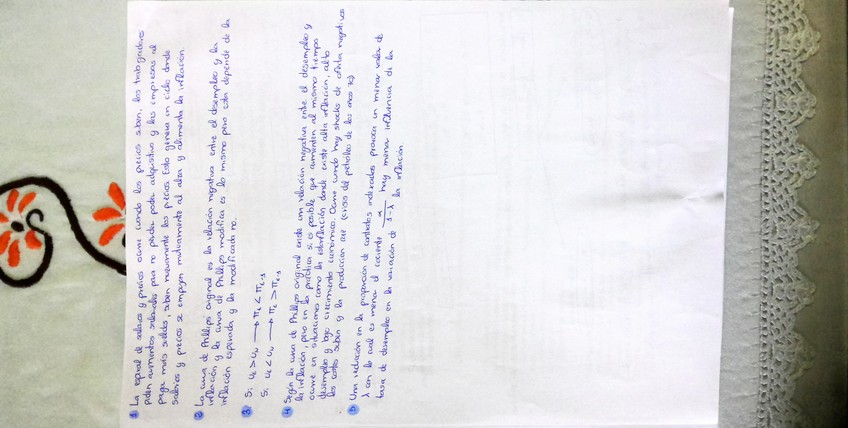 1 La espiral de salarios y precios ocurre cuando los precios suben, los trabajadores
piden aumentos salariales para no perder poder adquisitivo y las empresas al
pagar más sueldos, suben nuevamente los precios. Esto genera un ciclo donde
salarios y precios se empujan mutuamente al alza y alimenta la inflación.
2 La curva de Phillips original es la relación negativa entre el desempleo y la
inflación y la curva de Phillips modifica es lo mismo pero esta depende de la
inflación esperada y la modificada no.
3 Si Ut > Un → πt < πt-1
Si Ut < Un → πt > πt-1
4 Según la curva de Phillips original existe una relación negativa entre el desempleo y
la inflación, pero en la práctica si es posible que aumenten al mismo tiempo
ocurre en situaciones como la estanflación donde existe alta inflación, alto
desempleo y bajo crecimiento económico. Ocurre cuando hay shocks de oferta negativos
los costos suben y la producción cae (crisis del petróleo de los años 70)
5 Una reducción en la proporción de contratos indexados provoca un menor valor de
λ con lo cual es menor el cociente α/1-λ hay menor influencia de la
tasa de desempleo en la variación de la inflación